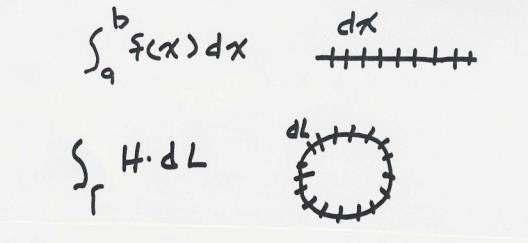 ∫ₐᵇ f(x) dx dx
∫_Γ H·dL dL